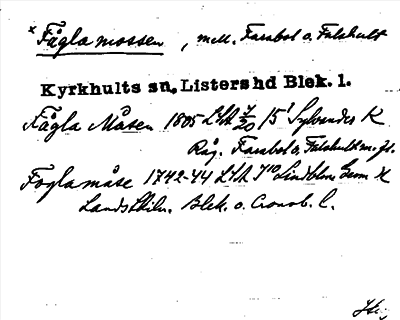 * Fågla mossen, mell. Farabol o. Fulehult
Kyrkhults sn, Listers hd Blek. l.
Fågla Måsen 1805 Lth 7/20 15' Sylvanders K
Råg. Farabol o. Fulehult m. fl.
Foglamåse 1742-44 Lth Lindblm Grm K
Landskiln. Blek. o. Cronob. l.